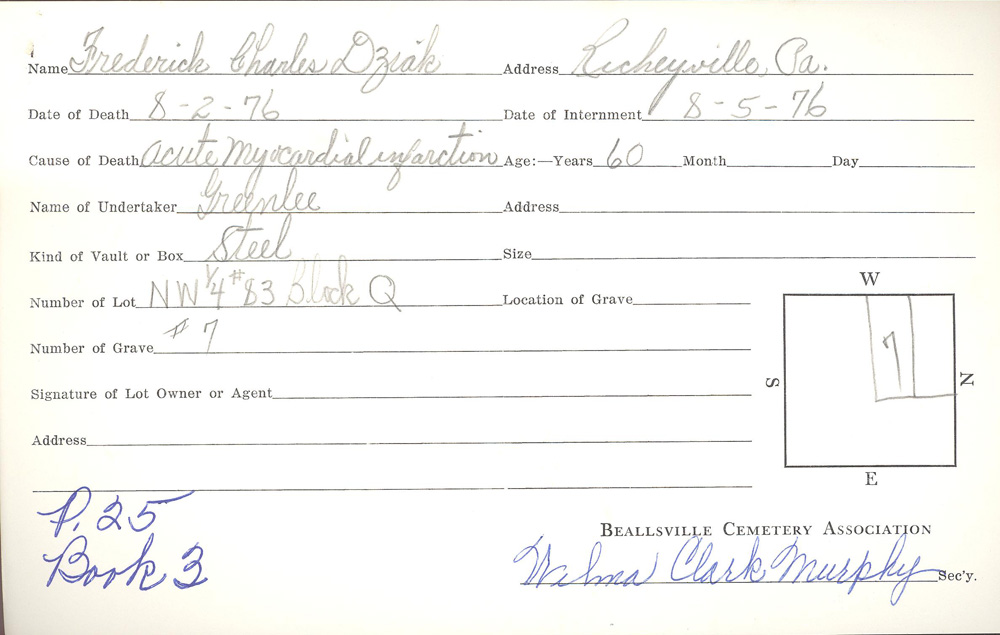 Name Frederick Charles Dziak Address Richeyville, Pa.
Date of Death 8-2-76 Date of Internment 8-5-76
Cause of Death Acute Myocardial infarction Age:—Years 60 Month Day
Name of Undertaker Greenlee Address
Kind of Vault or Box Steel Size
Number of Lot NW 1/4 #83 Block Q Location of Grave
Number of Grave #7
Signature of Lot Owner or Agent
Address
W
S 7 N
E
P. 25
Book 3
BEALLSVILLE CEMETERY ASSOCIATION
Wilma Clark Murphy Sec'y.